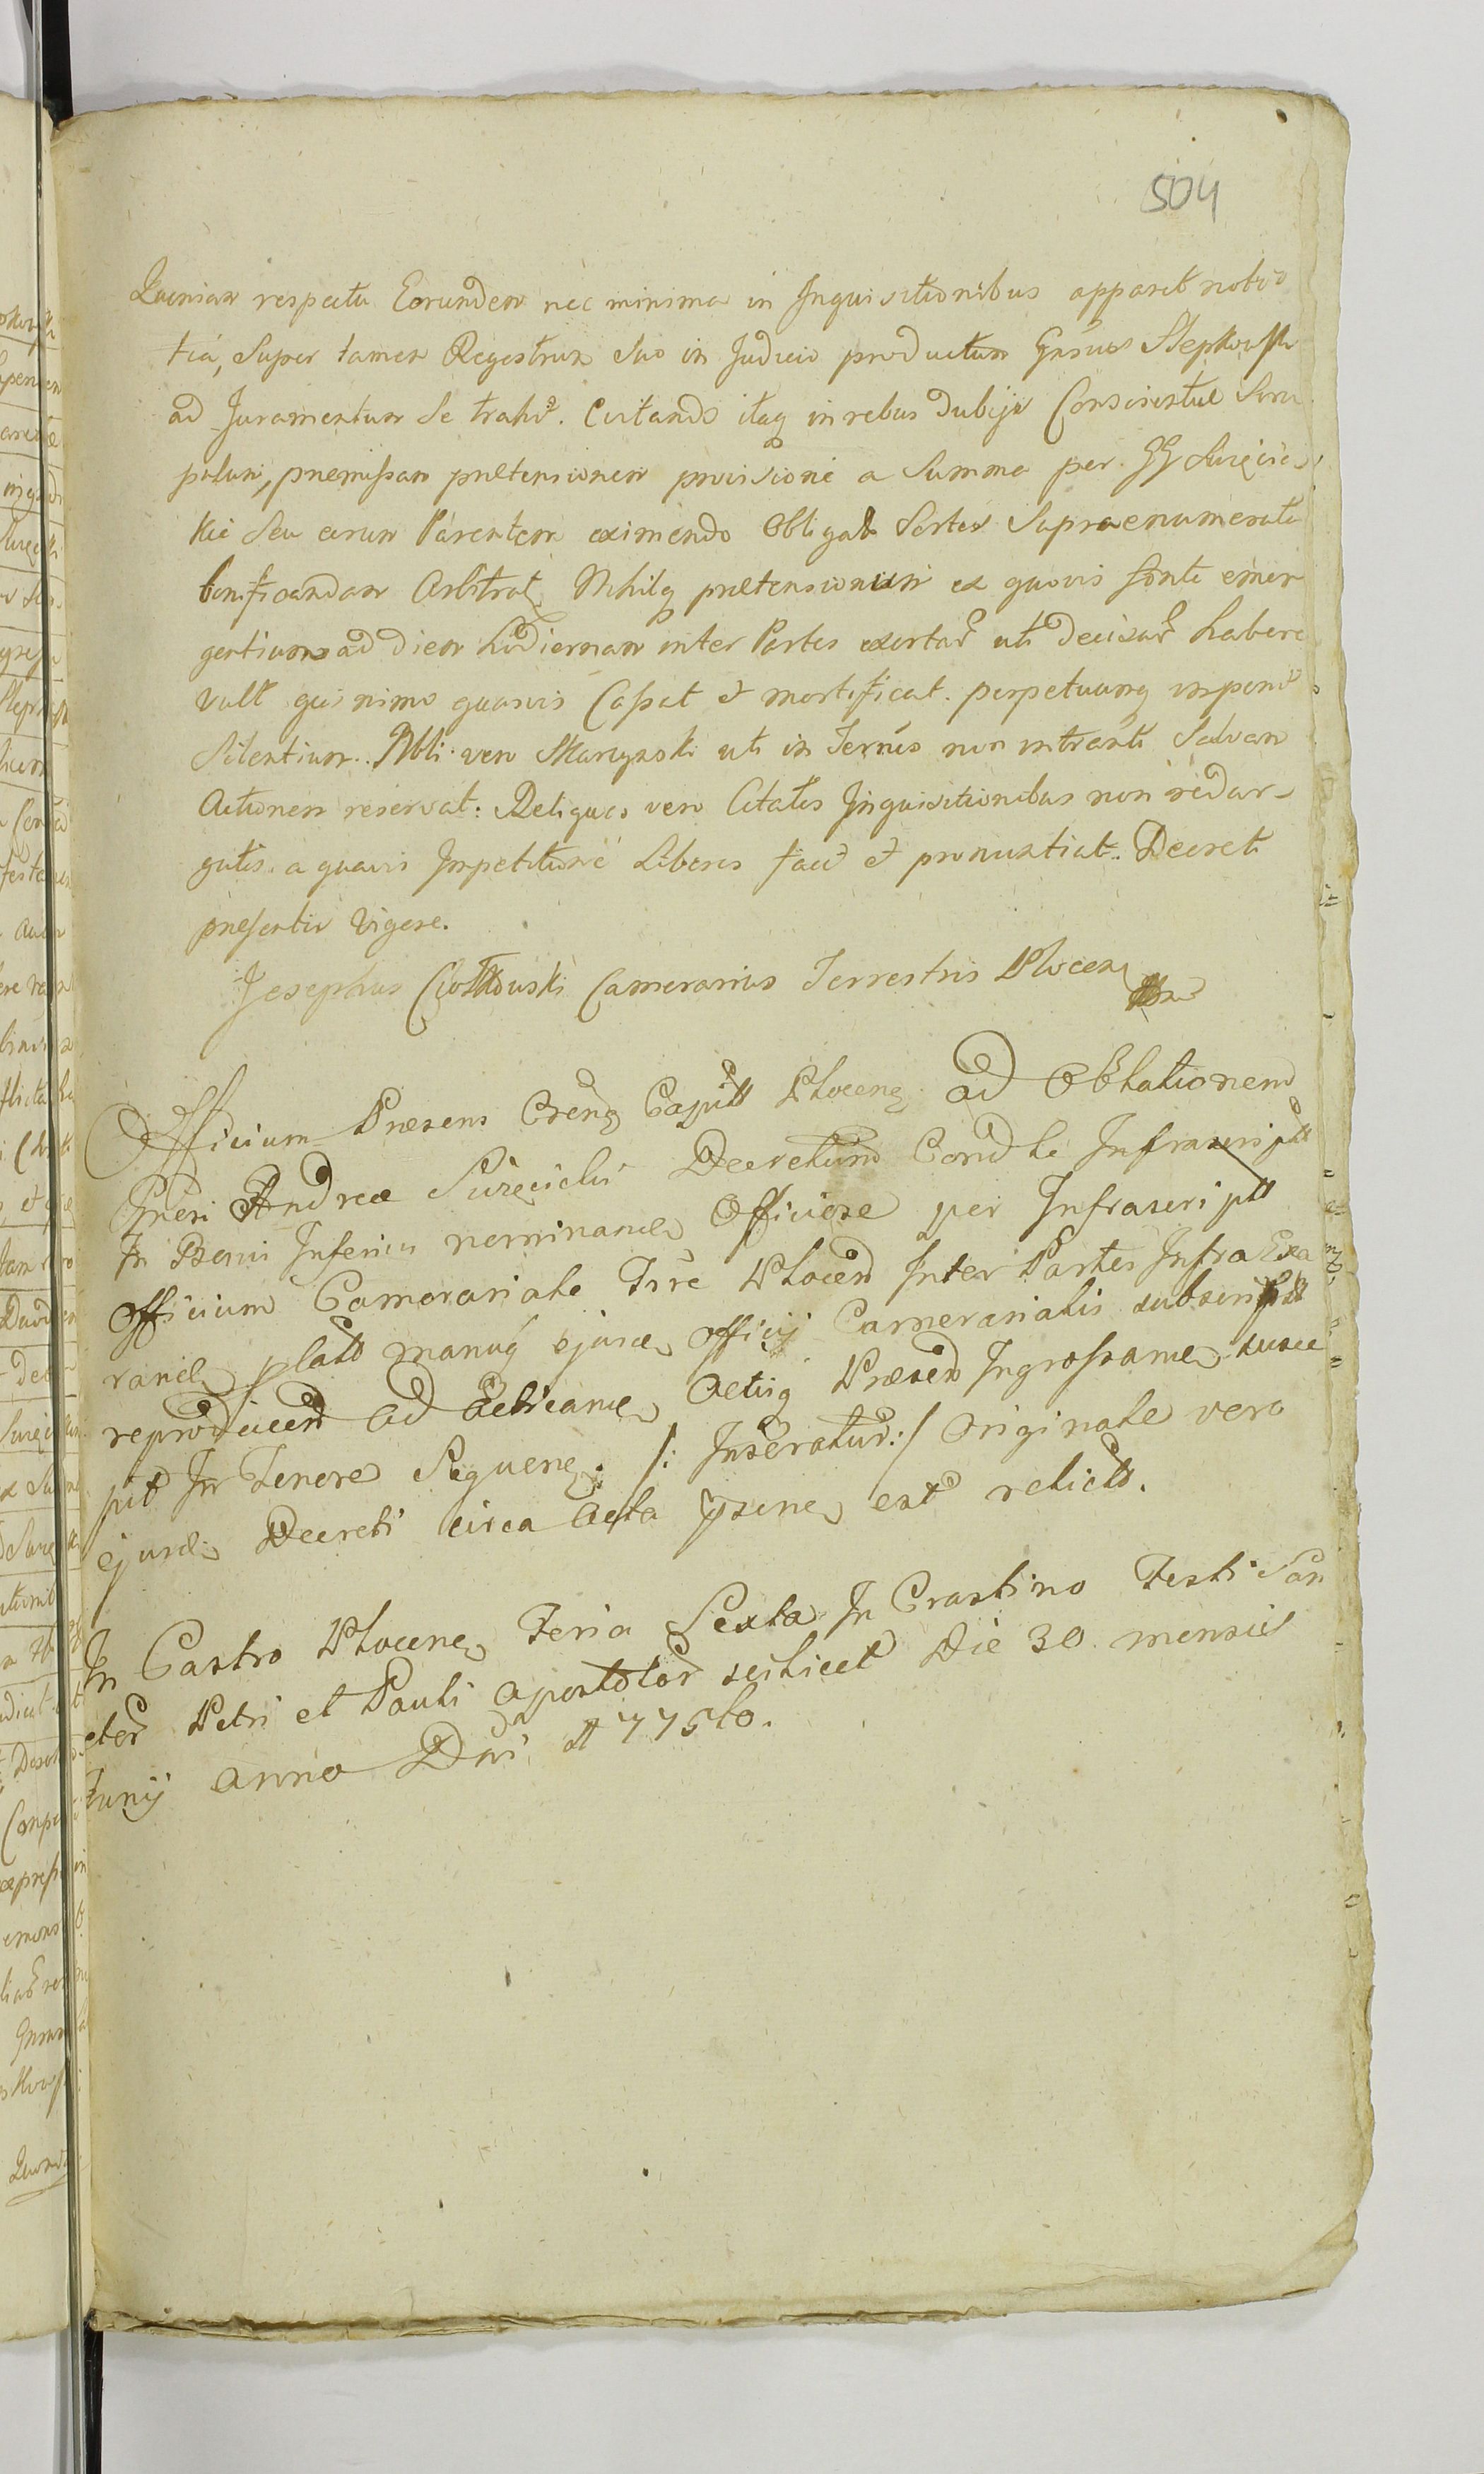 504
Quoniam respectu Eorundem nec minima in Inquisitionibus apparet noti
tia, Super tamen Regestrum suo in Judicio productum Gnsus Stępkowski
ad Juramentum se trahit. Evitando itaq in rebus dubijs Conscientiae Scru
pulum, praemissam praetensionem provisione a Summa per GG Suręcic
kie Seu eorum Parentem eximendo obligat Sortes Supraenumerata
bonificandam Arbitrat. Nihilq praetensionum ex quovis fonte emer
gentium ad diem hodiernam inter Partes exortar uti decisar habere
vult quinimo quasvis Cassat et mortificat. perpetuumq imponit
Silentium. Nbli vero Skarzynski uti in Termis non intranti Salvam
Actionem reservat: Reliquos vero Citatos Inquisitionibus non redar-
gutis a quavis Impetitione Liberos facit et pronuntiat. Decreti
praesentis Vigore.
Josephus Ciołkowski Camerarius Terrestris Plocen
Officium Praesens Crens Capitt Plocens ad Oblationem
Gnesi Andreae Suręcicki Decretum Condle Infrascriptt
In Bonis Inferius nominand Officiose per Infrascriptt
Officium Camerariale Trre Plocen Inter Partes Infra Exa
rand plato manuq ejusd Officij Camerarialis subscriptt
reproducen ad acticand Actisq Praesen Ingrossand susce
pit In Tenore Sequenq. /: Inseratur :/ Originale vero
ejusd Decreti circa Acta Ipsine est relict.
In Castro Plocens Feria Sexta In Crastino Festi San
ctor Petri et Pauli Apostolor scilicet Die 30 mensis
Junij Anno Dni 1775to.